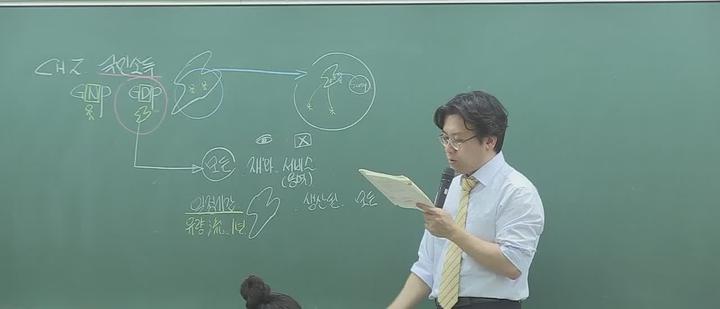 CH2 국민소득
GNP GDP
모든 재화 서비스
(용역)
일정기간 생산된 모든
유량 流 1년